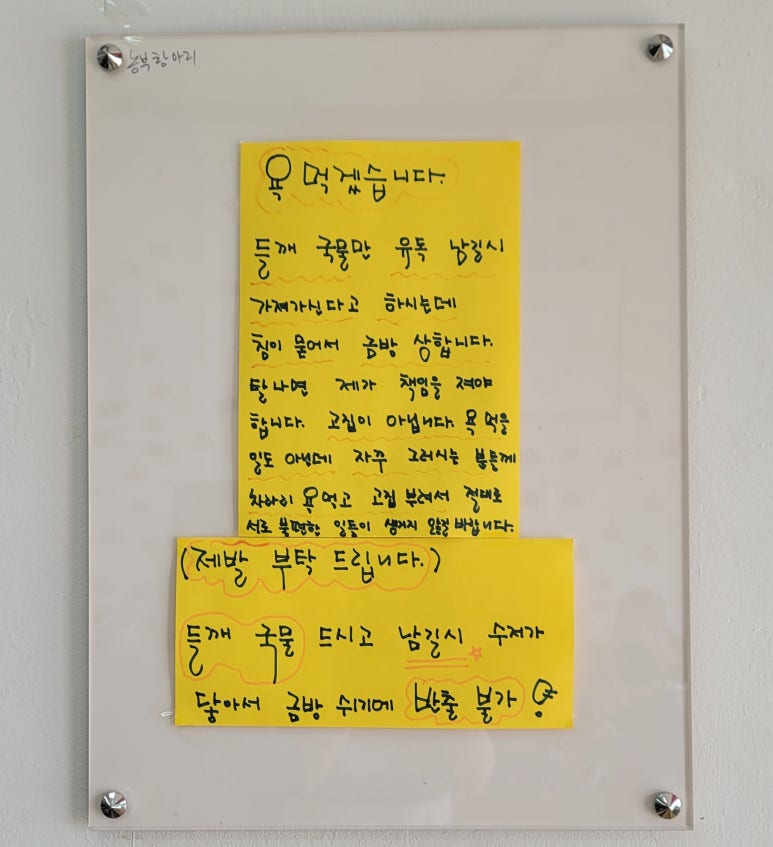 농부항아리
욕 먹겠습니다.
들깨 국물만 유독 남길시
가져가신다고 하시는데
침이 묻어서 금방 상합니다.
탈나면 제가 책임을 져야
합니다. 고집이 아닙니다 욕 먹을
일도 아닌데 자주 그러시는 분들께
차라리 욕먹고 고집 부려서 절대로
서로 불편한 일들이 생기지 않길 바랍니다.
(제발 부탁 드립니다.)
들깨 국물 드시고 남길시 수저가
닿아서 금방 쉬기에 반출 불가